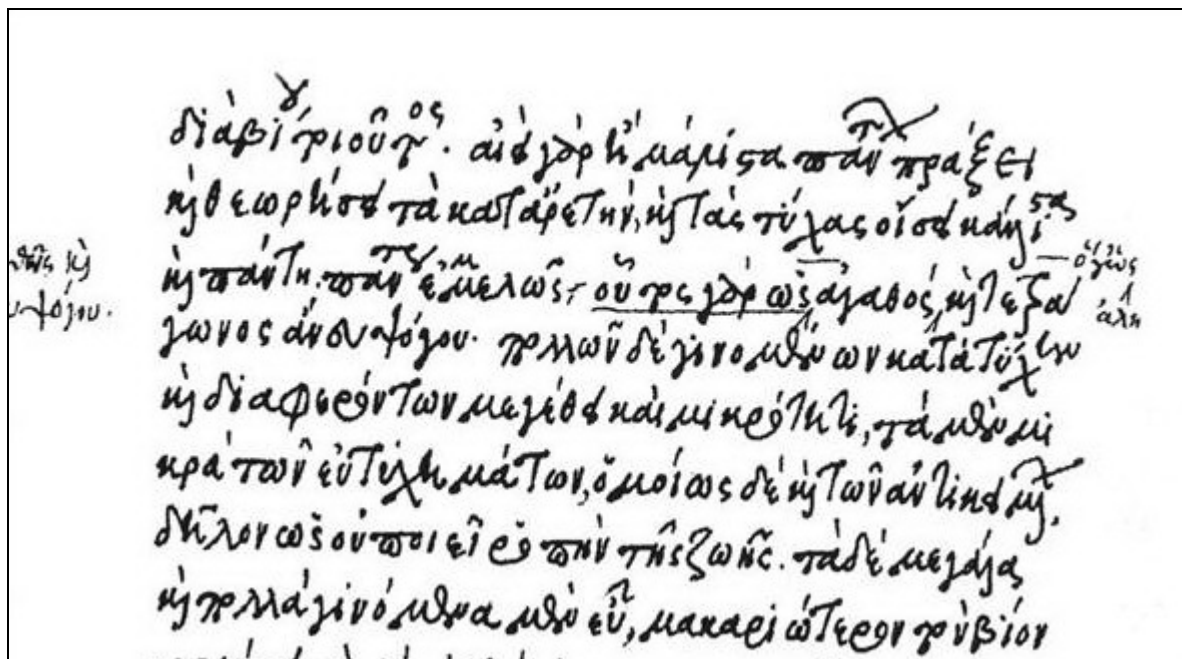 διὰ βίου τοιοῦτος. ἀεὶ γὰρ ἢ μάλιστα πάντων πράξει
καὶ θεωρήσει τὰ κατ' ἀρετὴν, καὶ τὰς τύχας οἴσει κάλλιστα
καὶ πάντη πάντως ἐμμελῶς, οὗτος γὰρ ὡς ἀγαθός, καὶ τετρά
γωνος ἄνευ ψόγου. πολλῶν δὲ γινομένων κατὰ τύχην
καὶ διαφερόντων μεγέθει καὶ μικρότητι, τὰ μὲν μι
κρὰ τῶν εὐτυχημάτων, ὁμοίως δὲ καὶ τῶν ἀντικειμένων,
δῆλον ὡς οὐ ποιεῖ ῥοπὴν τῆς ζωῆς. τὰ δὲ μεγάλα
καὶ πολλὰ γινόμενα μὲν εὖ, μακαριώτερον τὸν βίον
θῶς καὶ
υ ψόγου.
ὅ γε ὡς
ἀλη